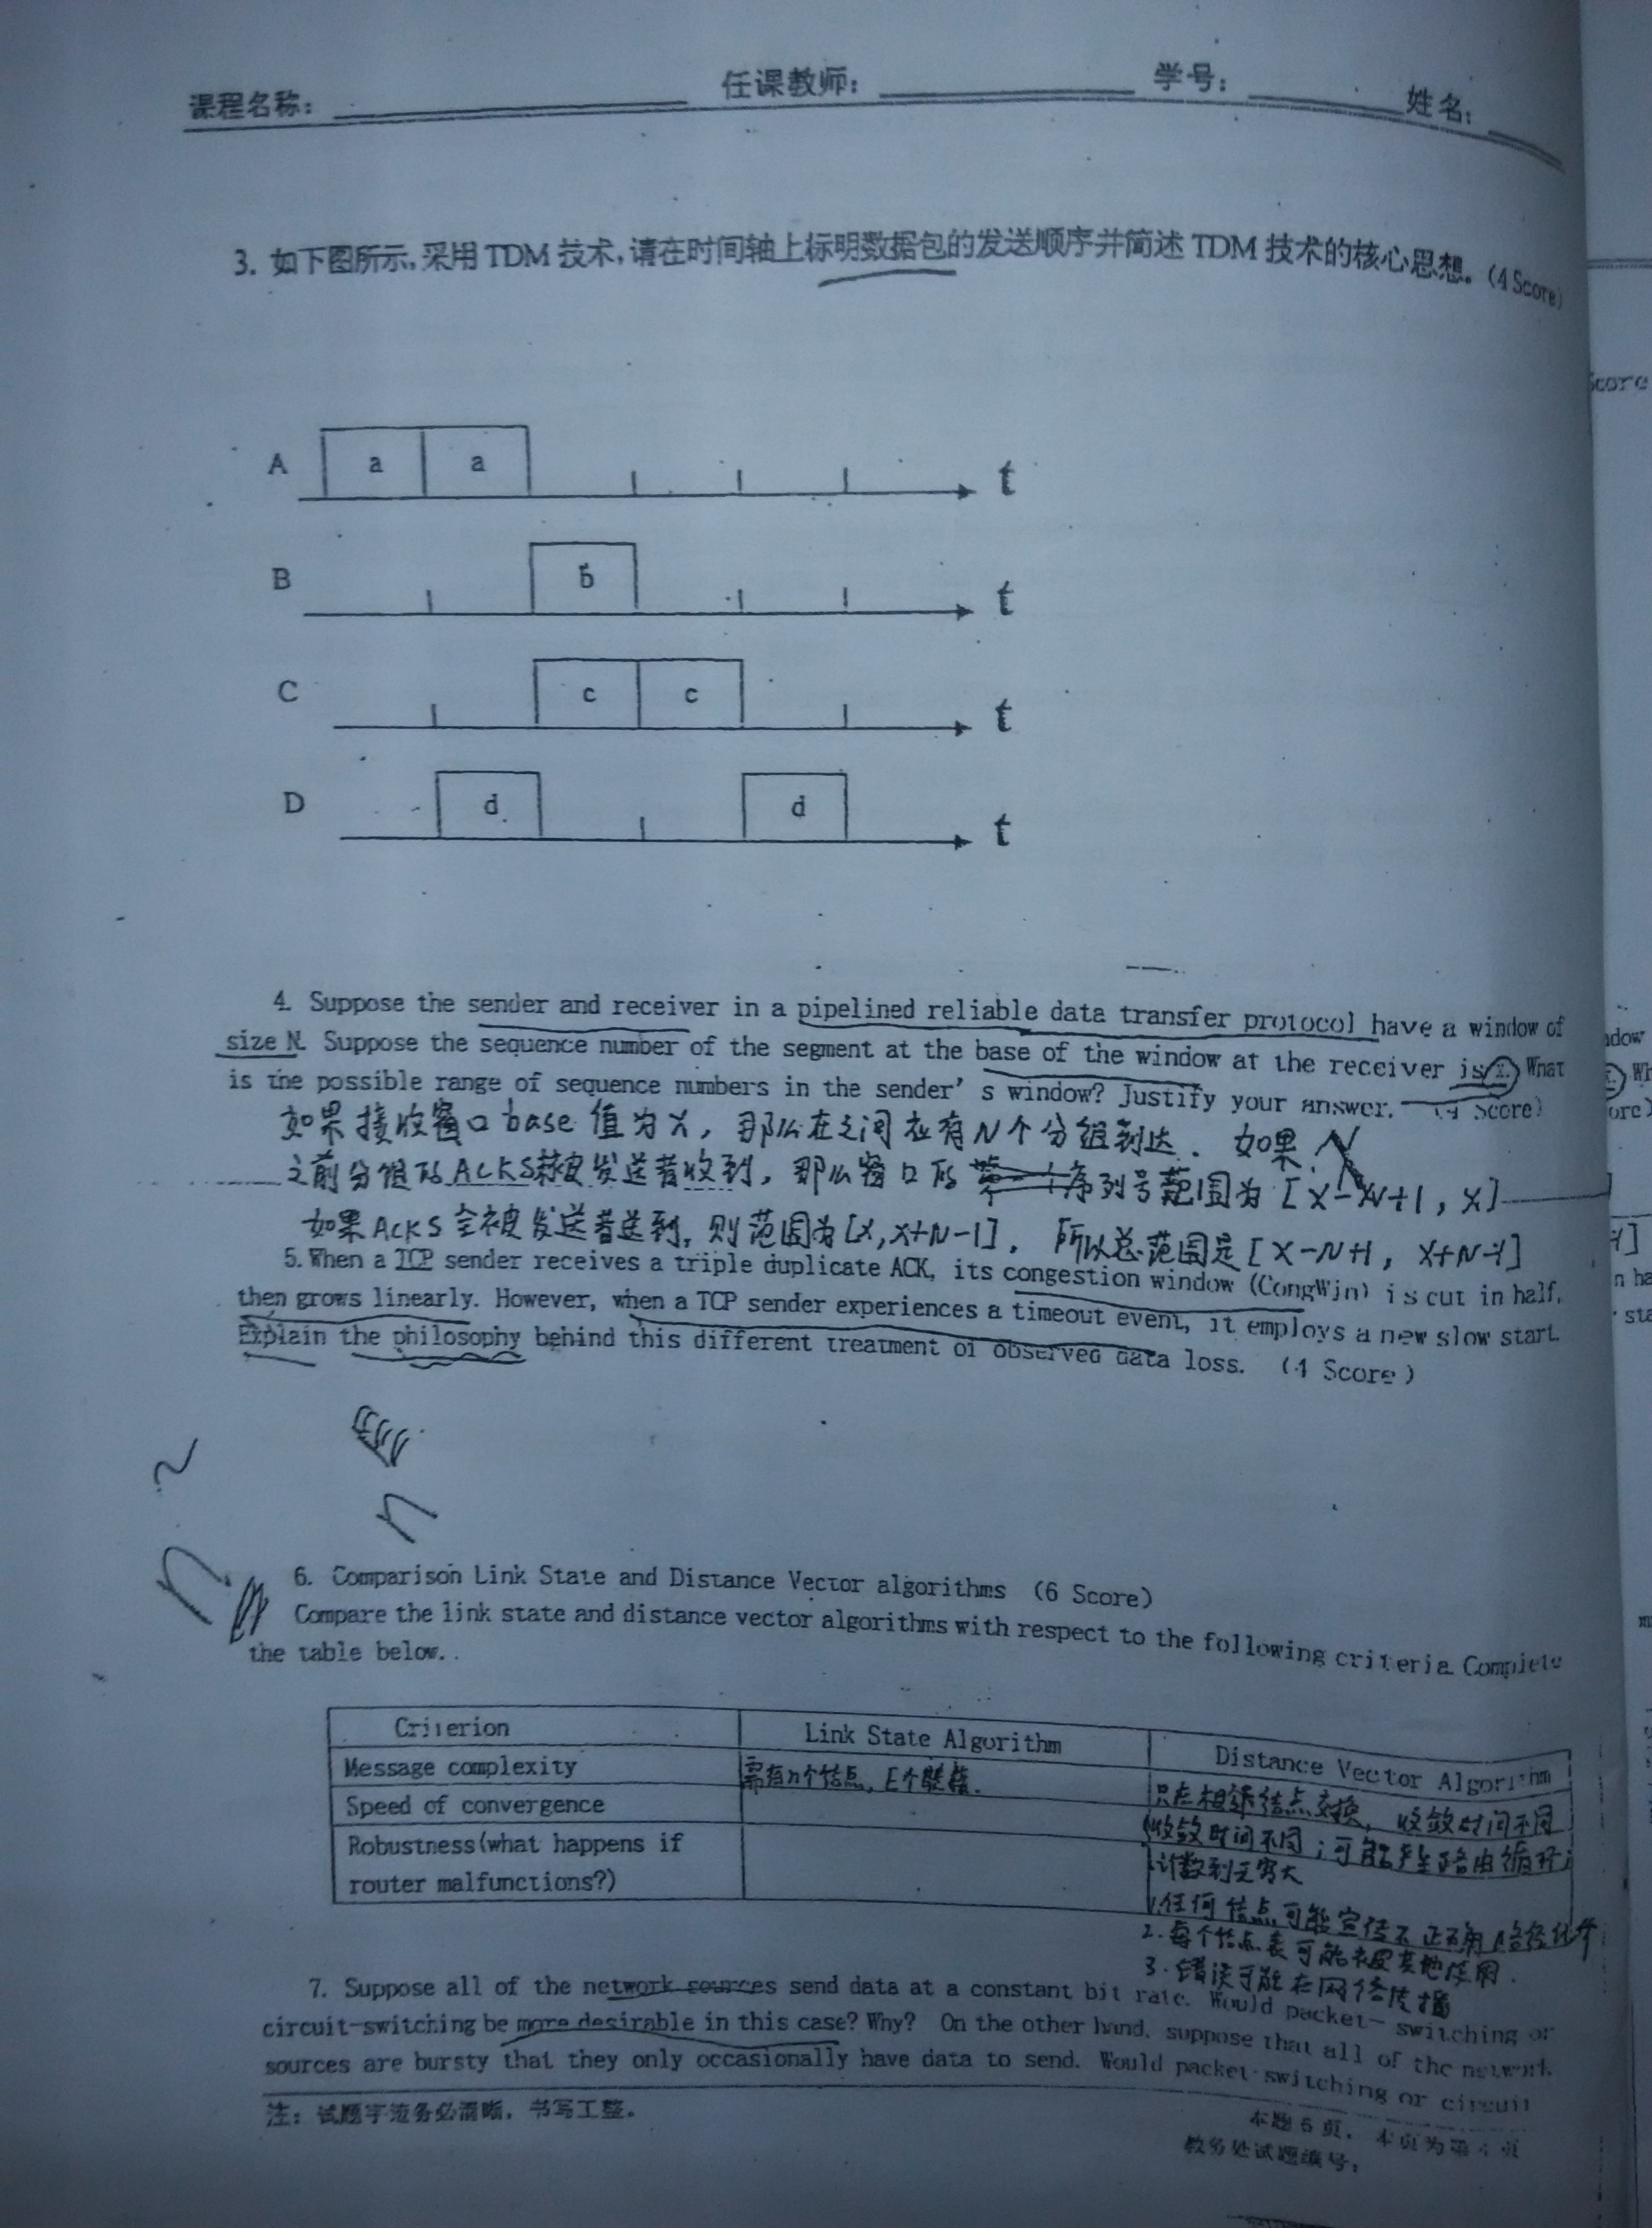 课程名称: 任课教师: 学号: 姓名:
3. 如下图所示,采用 TDM 技术,请在时间轴上标明数据包的发送顺序并简述 TDM 技术的核心思想。(4 Score)
A a a t
B b t
C c c t
D d d t
4. Suppose the sender and receiver in a pipelined reliable data transfer protocol have a window of
size N. Suppose the sequence number of the segment at the base of the window at the receiver is x. What
is the possible range of sequence numbers in the sender's window? Justify your answer. (4 Score)
如果接收窗口base 值为X, 那么在之间应有N个分组到达. 如果N
之前分组的ACKS被发送者收到, 那么窗口的 序列号范围为[X-N+1, X]
如果ACKS全被发送者送到, 则范围为[X, X+N-1], 所以总范围是[X-N+1, X+N-1]
5. When a TCP sender receives a triple duplicate ACK, its congestion window (CongWin) is cut in half,
then grows linearly. However, when a TCP sender experiences a timeout event, it employs a new slow start.
Explain the philosophy behind this different treatment of observed data loss. (4 Score)
n
n
6. Comparison Link State and Distance Vector algorithms (6 Score)
Compare the link state and distance vector algorithms with respect to the following criteria Complete
the table below.
Criterion Link State Algorithm Distance Vector Algorithm
Message complexity 需有n个结点, E个链 只在相邻结点交换, 收敛时间不同
Speed of convergence 收敛时间不同; 可能产生路由循环;
计数到无穷大
Robustness(what happens if
router malfunctions?) 1.任何结点可能宣传不正确路径
2. 每个结点表可能被其他使用.
3. 错误可能在网络传播
7. Suppose all of the network sources send data at a constant bit rate. Would packet- switching or
circuit-switching be more desirable in this case? Why? On the other hand, suppose that all of the network
sources are bursty that they only occasionally have data to send. Would packet-switching or circuit
注: 试题字迹务必清晰, 书写工整。
本题 6 页, 本页为第 4 页
教务处试题编号:
Score
ndow
Wh
ore)
n ha